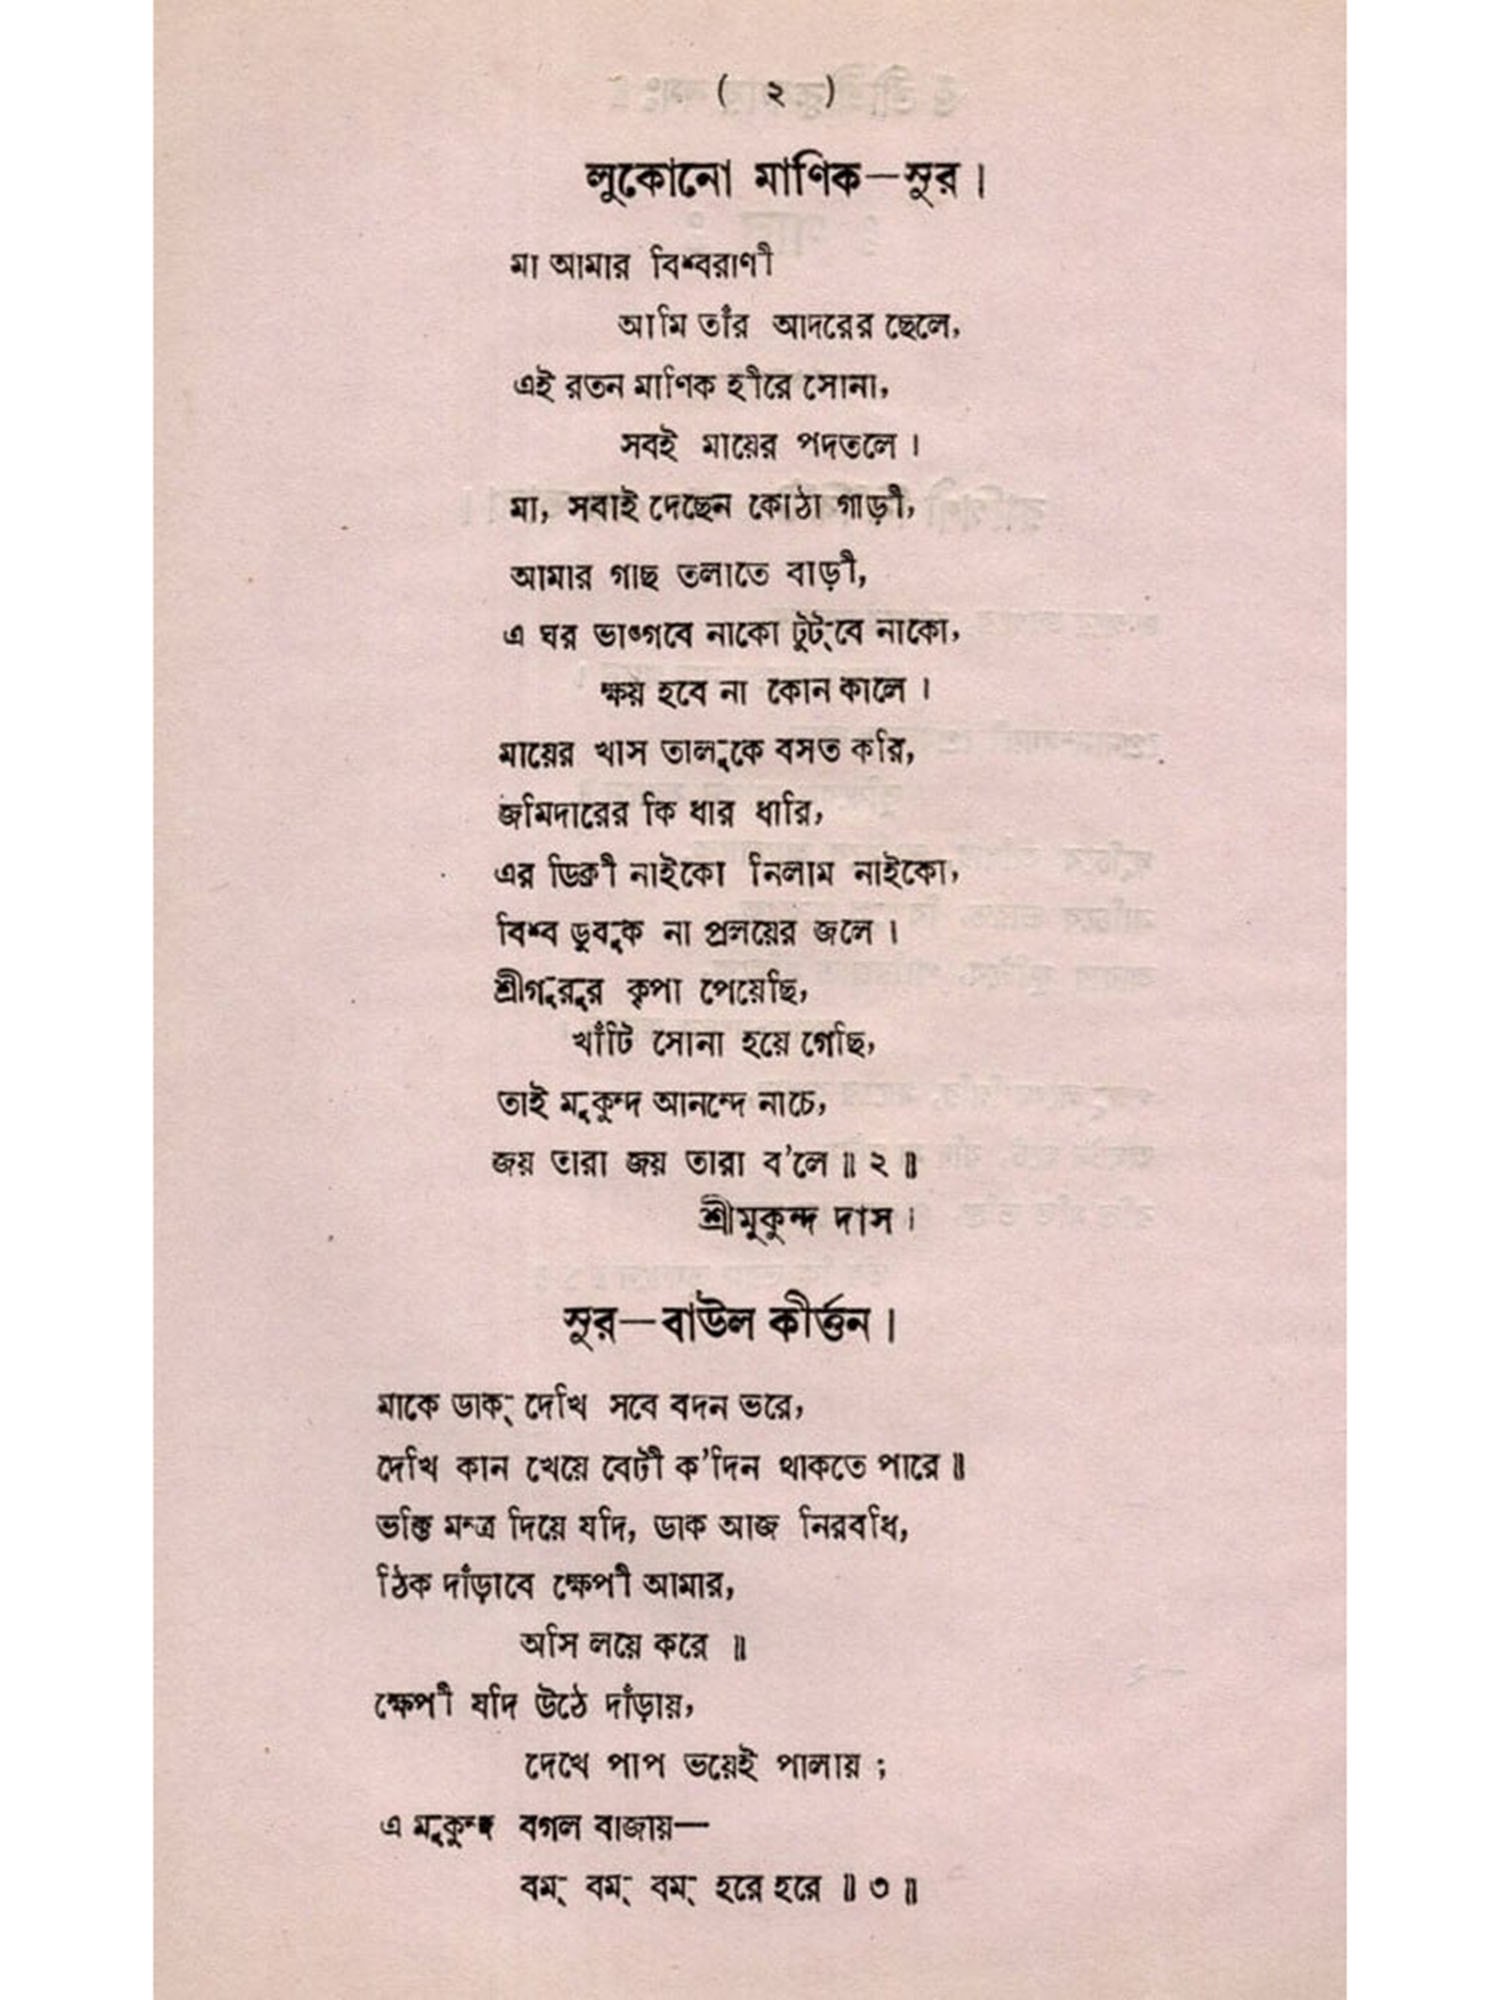 ( ২ )
লুকোনো মাণিক—সুর।
মা আমার বিশ্বরাণী
আমি তাঁর আদরের ছেলে,
এই রতন মাণিক হীরে সোনা,
সবই মায়ের পদতলে।
মা, সবাই দেছেন কোঠা গাড়ী,
আমার গাছ তলাতে বাড়ী,
এ ঘর ভাঙ্গবে নাকো টুট্‌বে নাকো,
ক্ষয় হবে না কোন কালে।
মায়ের খাস তালুকে বসত করি,
জমিদারের কি ধার ধারি,
এর ডিক্রী নাইকো নিলাম নাইকো,
বিশ্ব ডুবুক না প্রলয়ের জলে।
শ্রীগুরুর কৃপা পেয়েছি,
খাঁটি সোনা হয়ে গেছি,
তাই মুকুন্দ আনন্দে নাচে,
জয় তারা জয় তারা ব'লে॥ ২॥
শ্রীমুকুন্দ দাস।
সুর—বাউল কীর্ত্তন।
মাকে ডাক্ দেখি সবে বদন ভরে,
দেখি কান খেয়ে বেটী ক'দিন থাকতে পারে॥
ভক্তি মন্ত্র দিয়ে যদি, ডাক আজ নিরবধি,
ঠিক দাঁড়াবে ক্ষেপী আমার,
অসি লয়ে করে ॥
ক্ষেপী যদি উঠে দাঁড়ায়,
দেখে পাপ ভয়েই পালায় ;
এ মুকুন্দ বগল বাজায়—
বম্ বম্ বম্ হরে হরে ॥ ৩॥